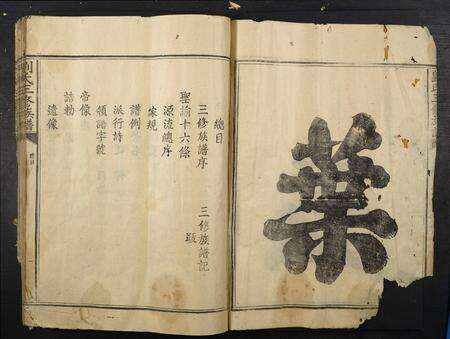 業
總目
三修族譜序 三修族譜記
聖諭十六條 跋
源流總序
家規
譜例
派行詩
領譜字號
帝像
誥勅
遺像